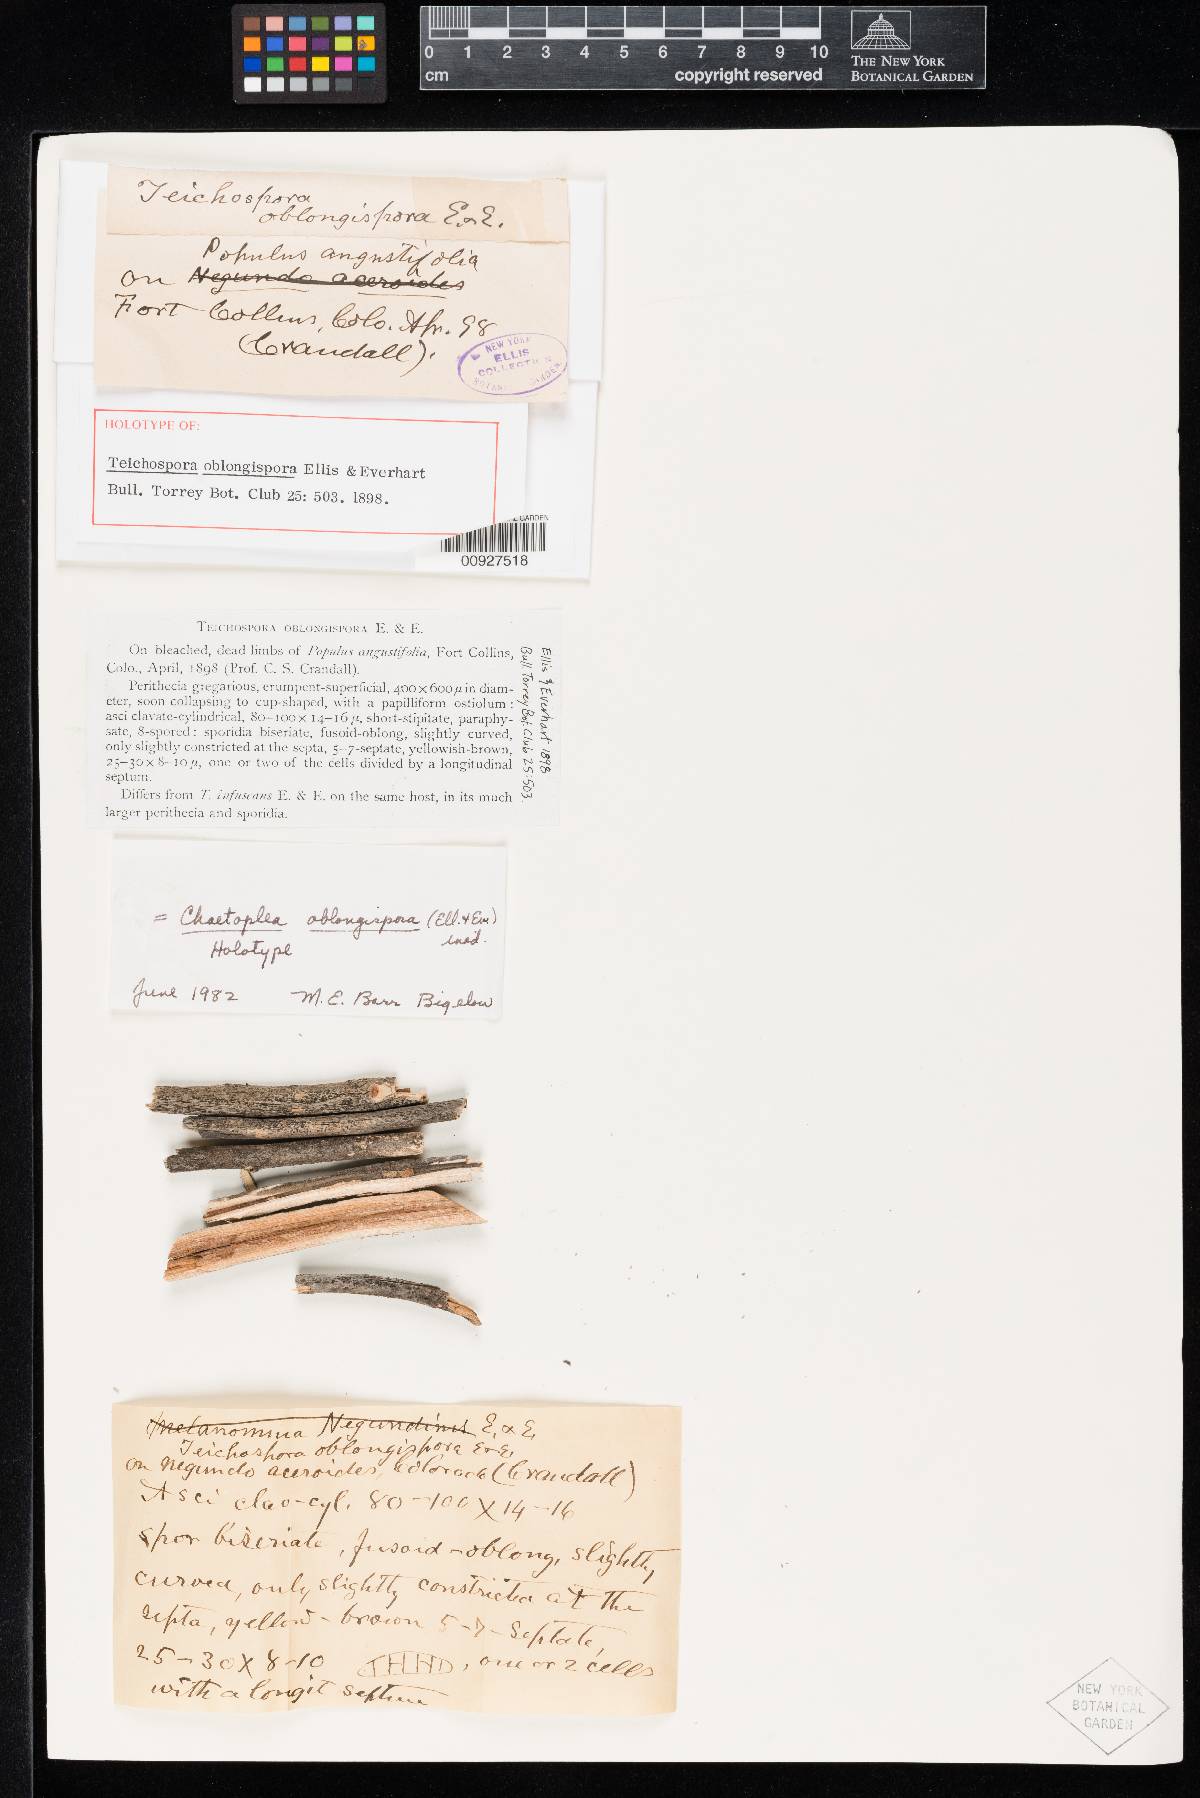 0 1 2 3 4 5 6 7 8 9 10
cm
copyright reserved
THE NEW YORK
BOTANICAL GARDEN
Teichospora
oblongispora E. & E.
Populus angustifolia
on Negundo aceroides
Fort Collins, Colo. Apr. 98
(Crandall).
NEW YORK
ELLIS
COLLECTION
BOTANICAL GARDEN
HOLOTYPE OF:
Teichospora oblongispora Ellis & Everhart
Bull. Torrey Bot. Club 25: 503. 1898.
GARDEN
00927518
TEICHOSPORA OBLONGISPORA E. & E.
On bleached, dead limbs of Populus angustifolia, Fort Collins,
Colo., April, 1898 (Prof. C. S. Crandall).
Perithecia gregarious, erumpent-superficial, 400×600 μ in diam-
eter, soon collapsing to cup-shaped, with a papilliform ostiolum:
asci clavate-cylindrical, 80–100×14–16 μ, short-stipitate, paraphy-
sate, 8-spored: sporidia biseriate, fusoid-oblong, slightly curved,
only slightly constricted at the septa, 5–7-septate, yellowish-brown,
25–30×8–10 μ, one or two of the cells divided by a longitudinal
septum.
Differs from T. infuscans E. & E. on the same host, in its much
larger perithecia and sporidia.
Ellis & Everhart 1898
Bull. Torrey Bot. Club 25:503.
= Chaetoplea oblongispora (Ell. & Ev.)
ined.
Holotype
June 1982 M. E. Barr Bigelow
Melanomma Negundinis E. & E.
Teichospora oblongispora E & E.
on Negundo aceroides, Colorado (Crandall)
Asci clav-cyl. 80-100 X 14-16
spor biseriate, fusoid-oblong, slightly
curved, only slightly constricted at the
septa, yellow-brown 5-7-septate,
25-30 X 8-10 , one or 2 cells
with a longit septum
NEW YORK
BOTANICAL
GARDEN